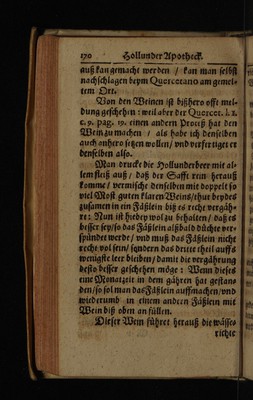 170 Hollunder Apotheck.
auß kan gemacht werden / kan man selbst
nachschlagen beym Quercetano am gemel-
tem Ort.
Von den Weinen ist bißhero offt mel-
dung geschehen: weil aber der Quercet. l. 2.
c. 9. pag. 19. einen andern Proceß hat den
Wein zu machen / als habe ich denselben
auch anhero setzen wollen / vnd verfertiget er
denselben also.
Man drucke die Hollunderbeer mit al-
lem fleiß auß / daß der Safft rein herauß
komme / vermische denselben mit doppelt so
viel Most guten klaren Weins / thue beydes
zusamen in ein Fäßlein biß es recht vergäh-
re: Nun ist hiebey wol zu behalten / daß es
besser sey / so das Fäßlein alßbald dichte ver-
spündet werde / vnd muß das Fäßlein nicht
recht vol sein / sondern das dritte theil auffs
wenigste leer bleiben / damit die vergährung
desto besser geschehen möge: Wenn dieses
eine Monatzeit in dem gähren hat gestan-
den / so sol man das Fäßlein auffmachen / vnd
wiederumb in einem andern Fäßlein mit
Wein biß oben an füllen.
Dieser Wein führet herauß die wässe-
richte